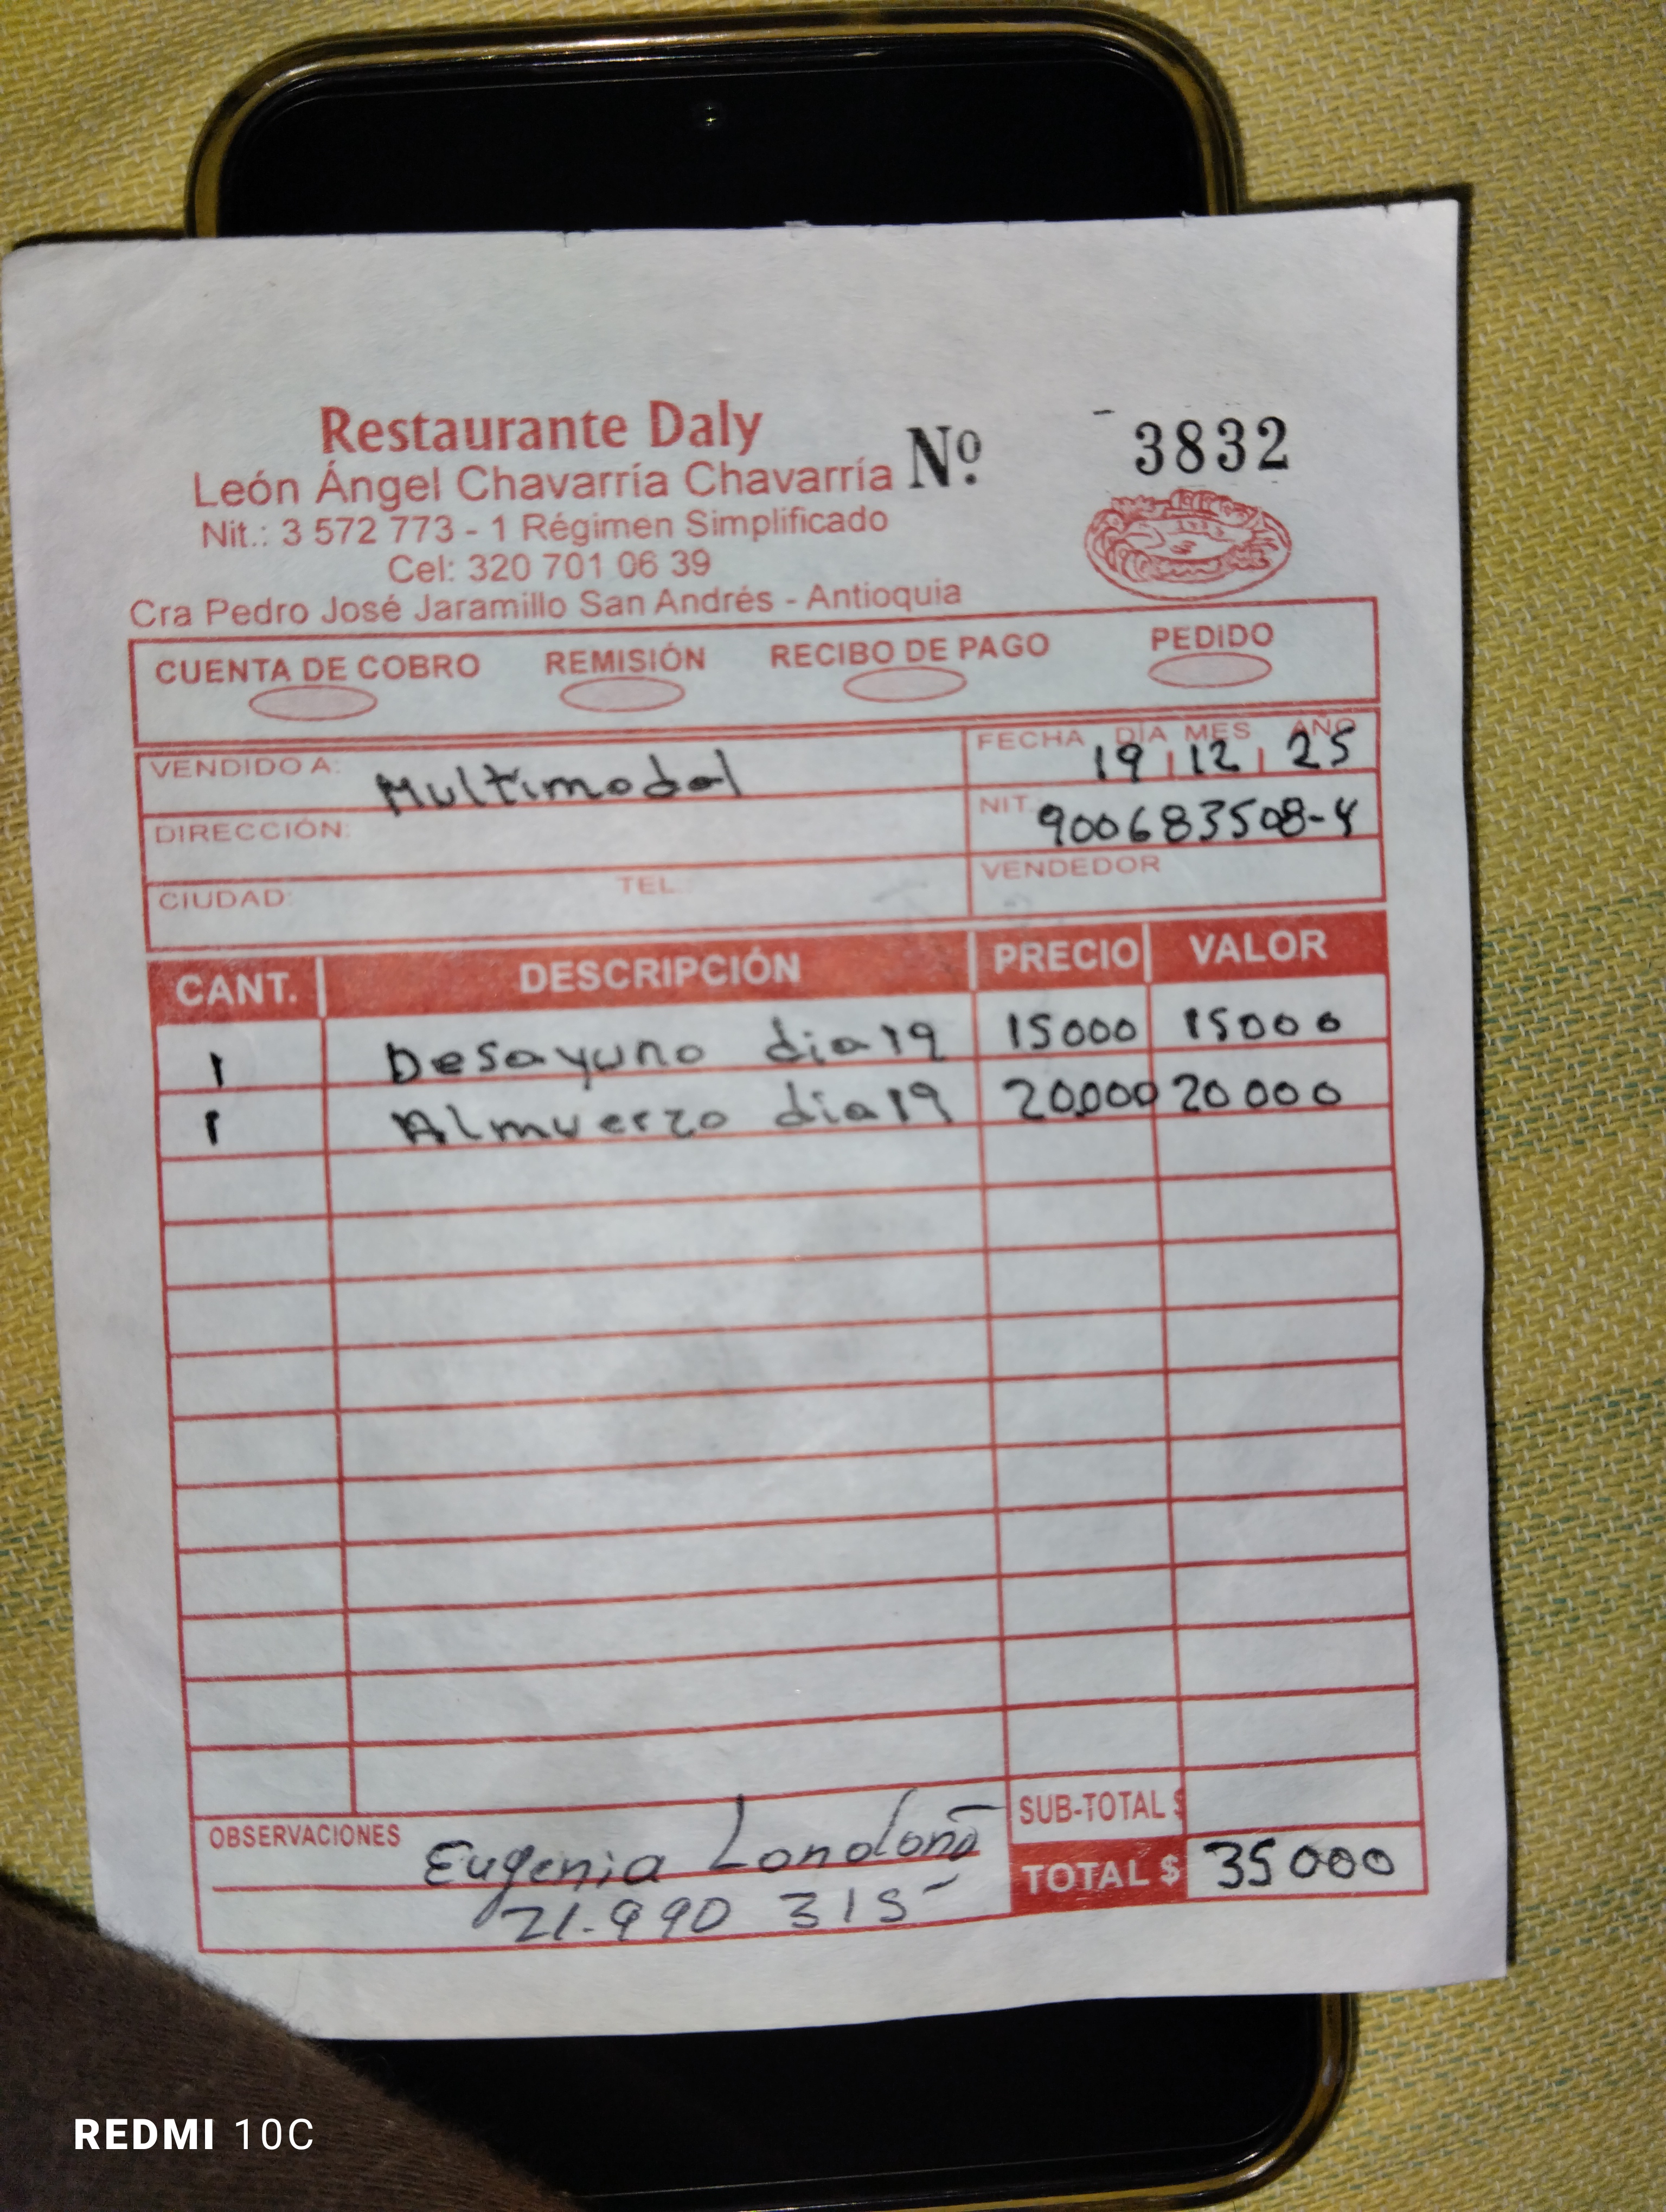 Restaurante Daly
Nº 3832
León Ángel Chavarría Chavarría
Nit.: 3 572 773 - 1 Régimen Simplificado
Cel: 320 701 06 39
Cra Pedro José Jaramillo San Andrés - Antioquia
CUENTA DE COBRO REMISIÓN RECIBO DE PAGO PEDIDO
VENDIDO A: Multimodal FECHA DÍA MES AÑO
19 12 25
DIRECCIÓN: NIT. 900683508-4
CIUDAD: TEL.: VENDEDOR
CANT. DESCRIPCIÓN PRECIO VALOR
1 Desayuno dia 19 15000 15000
1 Almuerzo dia 19 20000 20000
SUB-TOTAL $
OBSERVACIONES Eugenia Londoño
TOTAL $ 35000
21.990 315
REDMI 10C